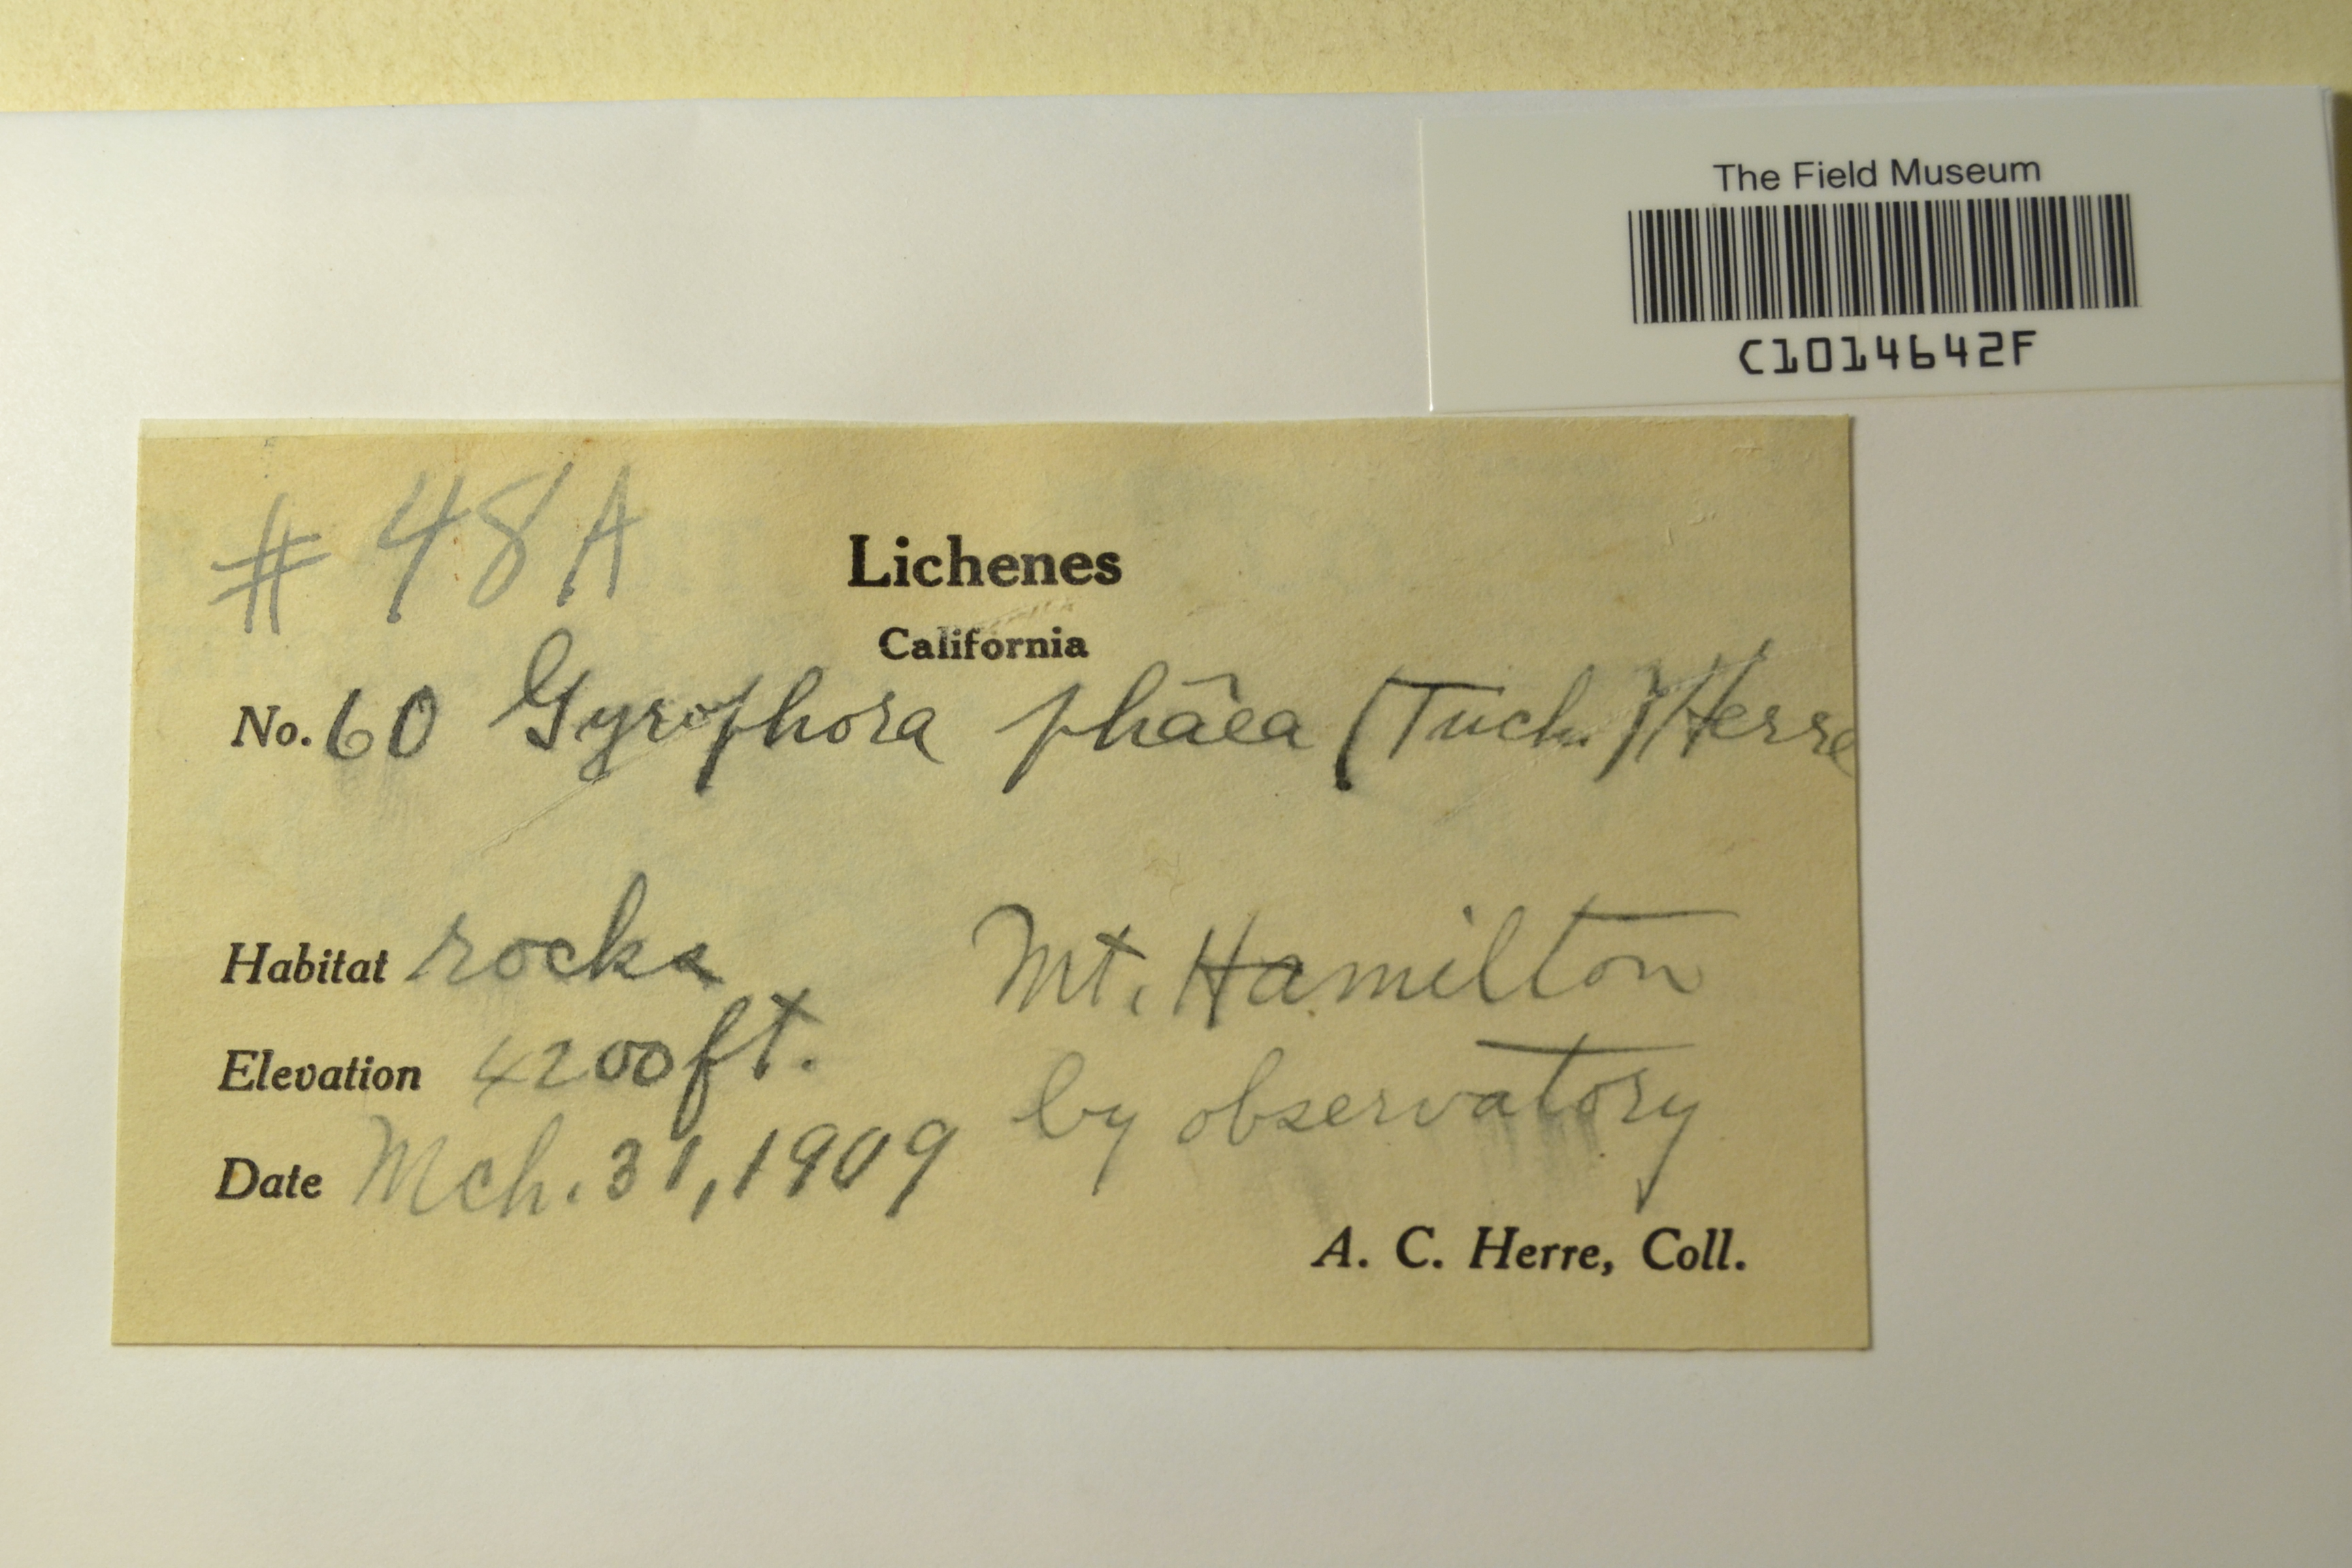 The Field Museum
C1014642F
# 48A
Lichenes
California
No. 60 Gyrophora phāea (Tuck.) Herre
Habitat rocks Mt. Hamilton
Elevation 4200 ft. by observatory
Date Mch. 31, 1909
A. C. Herre, Coll.